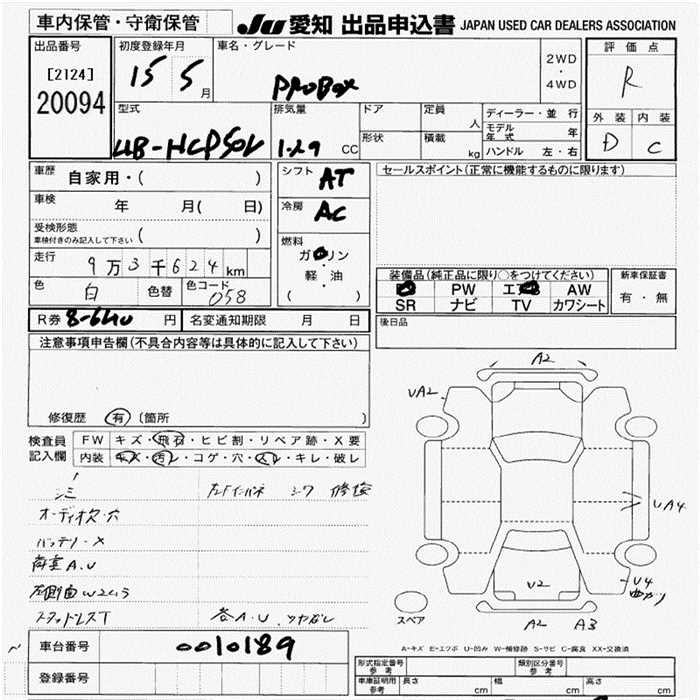 車内保管・守衛保管
JU 愛知 出品申込書 JAPAN USED CAR DEALERS ASSOCIATION
出品番号
[2124]
20094
初度登録年月
15 5 月
車名・グレード
PROBOX
2WD
・
4WD
評価点
R
型式
UB-NCP50V
排気量
1.29 CC
ドア
形状
定員
人
積載
kg
ディーラー・並行
モデル年式 年
ハンドル 左・右
外装 内装
D C
車歴 自家用・( )
車検 年 月( 日)
受検形態
車検付きのみ記入して下さい ( )
走行 9万3千624km
色 白 色替 色コード 058
シフト AT
冷房 AC
燃料
ガソリン
軽・油
( )
セールスポイント(正常に機能するものに限ります)
装備品(純正品に限り○をつけてください)
PW エア AW
SR ナビ TV カワシート
新車保証書
有・無
R券 8-640 円 名変通知期限 月 日
後日品
注意事項申告欄(不具合内容等は具体的に記入して下さい)
修復歴 有 (箇所 )
検査員記入欄
FW キズ・飛石・ヒビ割・リペア跡・X要
内装 キズ・汚レ・コゲ・穴・スレ・キレ・破レ
シミ
オーディオ欠・穴
バッテリー×
荷室A.U
スタッドレスT
各A.U
A2
UA2
UA4
U2
U4
曲り
A2 A3
スペア
A-キズ E-エクボ U-凹み W-補修跡 S-サビ C-腐食 XX-交換済
車台番号 0010189
登録番号
形式指定番号
参考
類別区分番号
参考
車庫証明用
参考
長さ cm 幅 cm 高さ cm